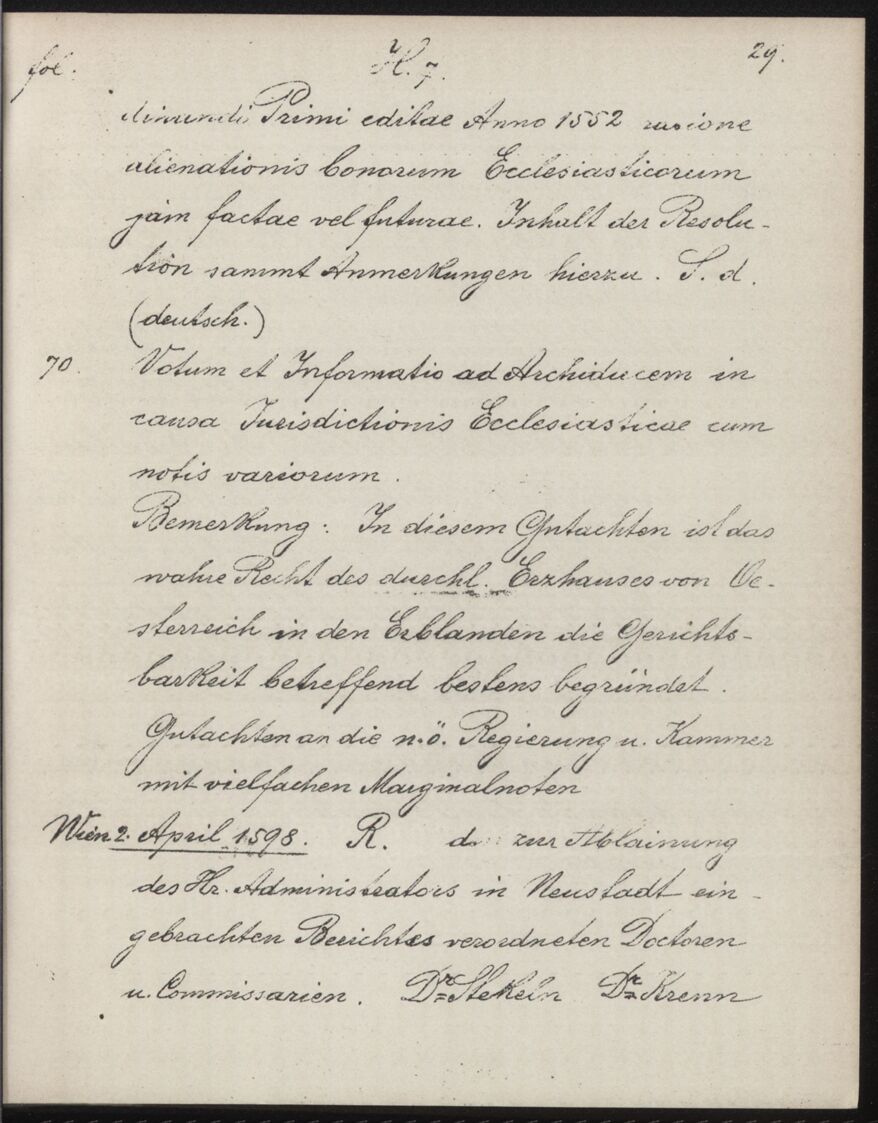 fol. H. 7. 29.
dinandi Primi editae Anno 1552 ratione
alienationis bonorum Ecclesiasticorum
jam factae vel futurae. Inhalt der Resolu-
tion sammt Anmerkungen hierzu. S. d.
(deutsch.)
70. Votum et Informatio ad Archiducem in
causa Jurisdictionis Ecclesiasticae cum
notis variorum.
Bemerkung: In diesem Gutachten ist das
wahre Recht des durchl. Erzhauses von Oe-
sterreich in den Erblanden die Gerichts-
barkeit betreffend bestens begründet.
Gutachten an die n.ö. Regierung u. Kammer
mit vielfachen Marginalnoten
Wien 2. April 1598. R. d. zur Ablainung
des Hr. Administrators in Neustadt ein-
gebrachten Berichtes verordneten Doctoren
u. Commissarien. Dr. Stekeln Dr. Krenn